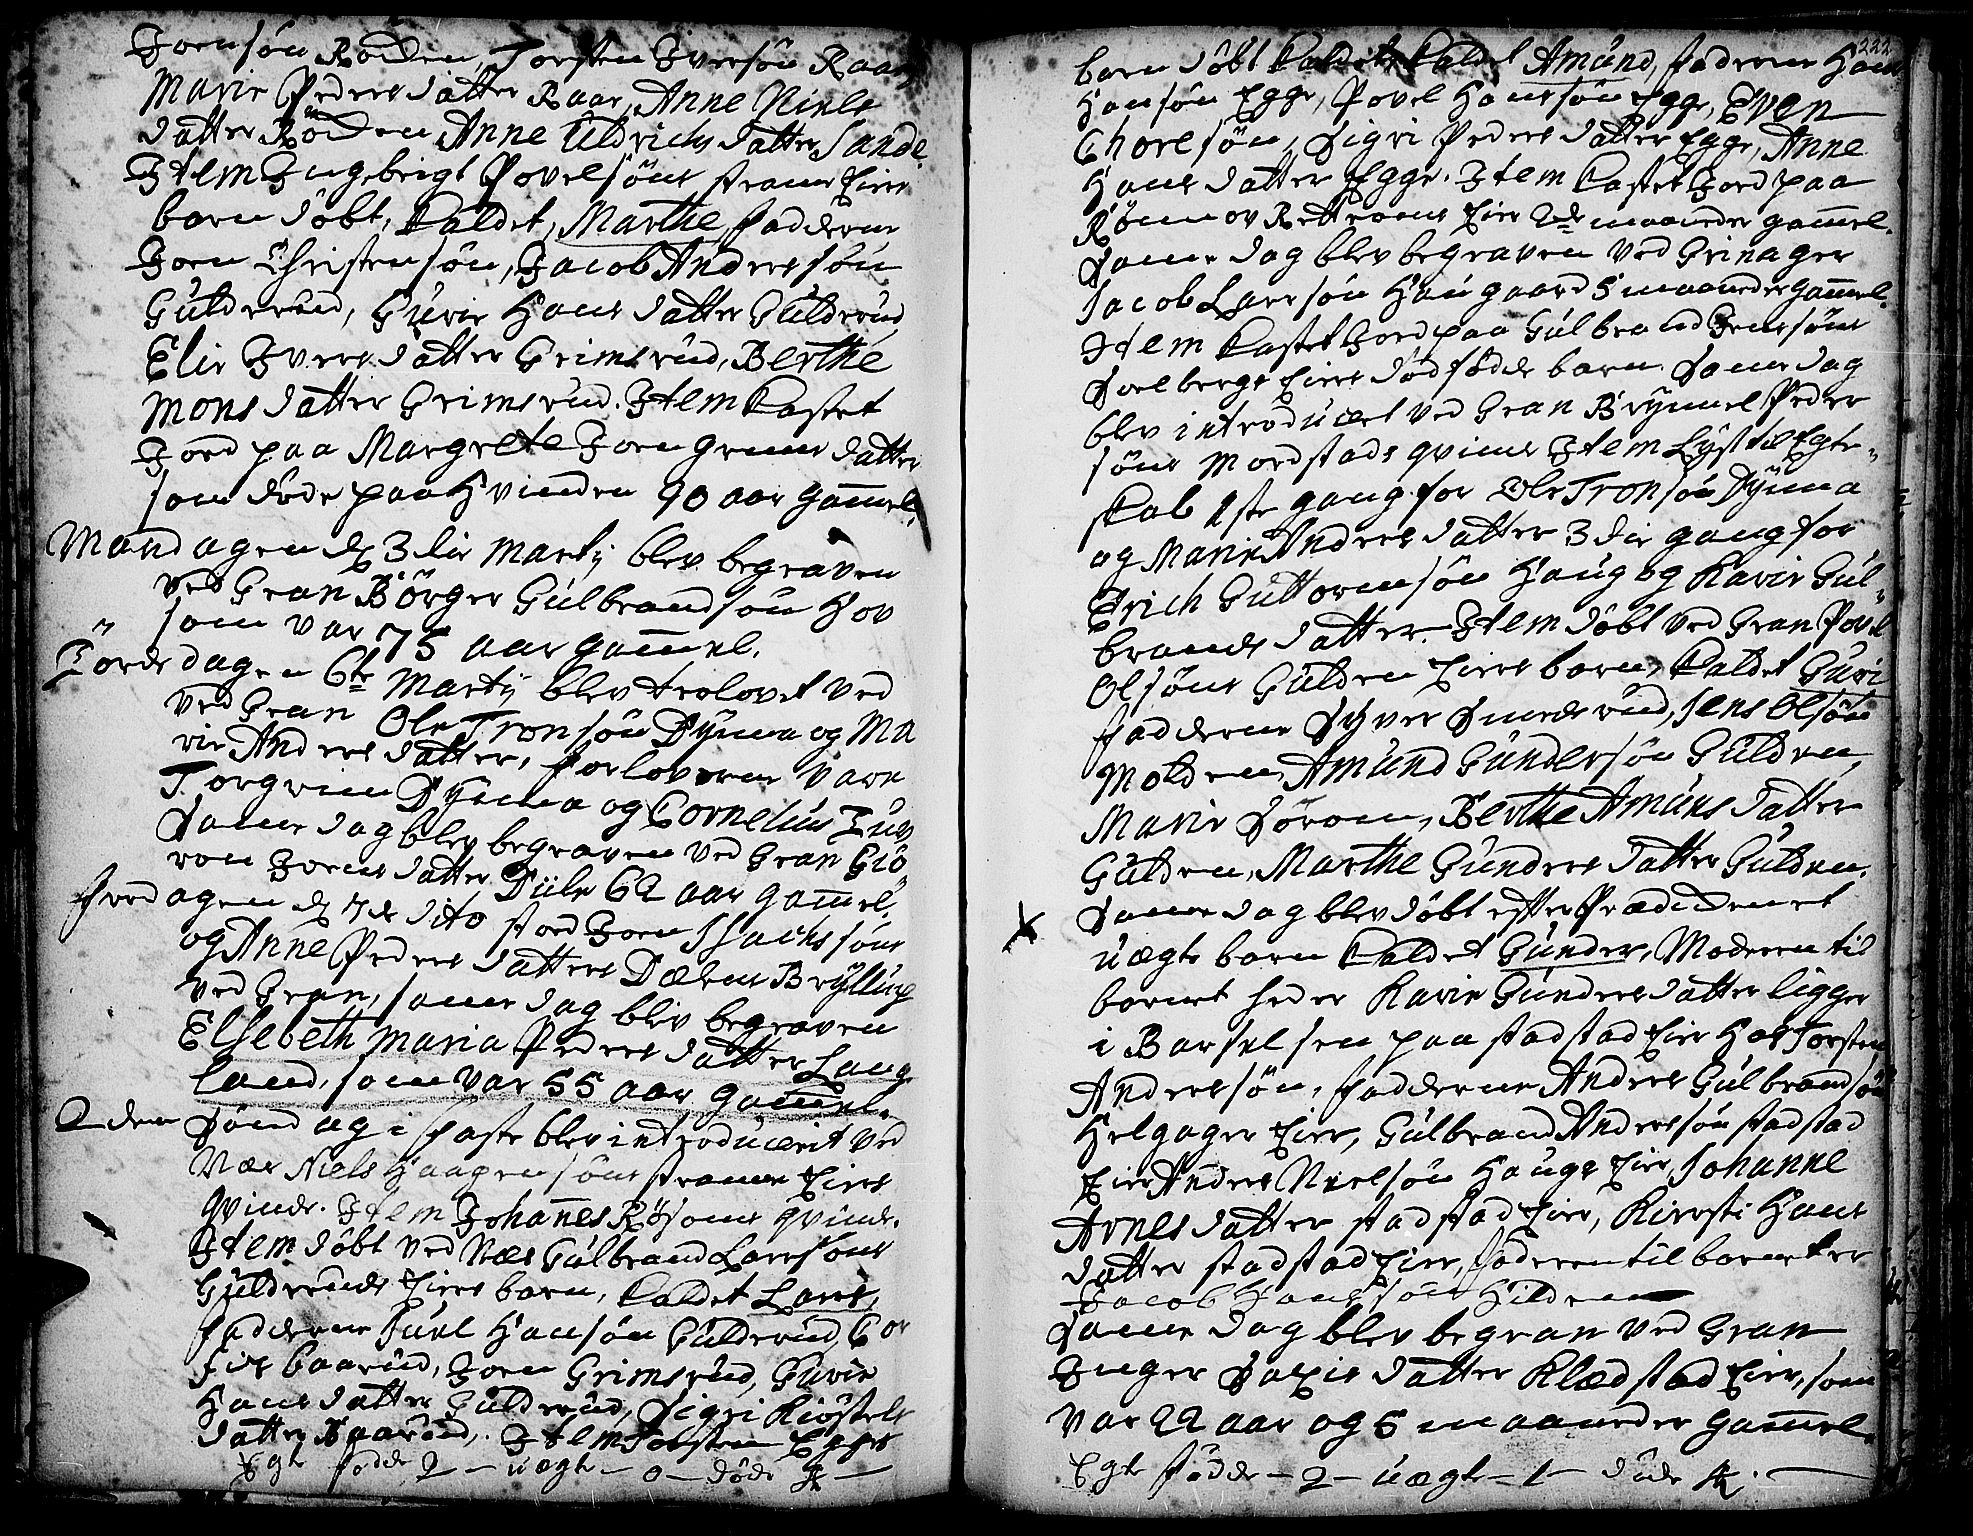 Joensøn Rodden, Torsten Iversøn Raar,
Marie Peders datter Raar, Anne Niels
datter Rödden Anne Uldrichs datter Sande.
Item Ingebrigt Povelsöns Strams Eies
barn döbt, kaldet, Marthe, fadderne
Joen Christensön, Jacob Anderssön
Gulderud, Gurie Hans datter Gulderud
Elie Ivers datter Grimsrud, Berthe
Mons datter Grimsrud. Item kastet
Jord paa Margrete Joen Grims datter
som döde paa Hvinden 90 aar gam̅el.
Mandagen d. 3die Martij blev begraven
ved Gran Börger Gulbrandsön Hov
som var 75 aar gam̅el.
Torsdagen 6te Martij blev trolovet ved
ved Gran Ole Tronsön Dynna og Ma
rie Anders datter, forloverne vare
Torgrim Dynna og Cornelius
Samme dag blev begraven ved Gran Giö
ron Joens datter 62 aar gam̅el.
fredagen d. 7de dito stod Joen Isachsöns
og Anne Peders datters Bryllup
ved Gran, same dag blev begraven
Elsebeth Maria Peders datter Lang
land, som var 55 aar gam̅el.
2den Söndag i faste blev introducerit ved
Næs Niels Haagensöns Strams Eies
qvinde. Item Johan̅es Röjsons qvinde.
Item döbt ved Næs Gulbrand Larssöns
Gulderuds Eies barn, kaldet Lars,
fadderne Juel Hansön Gulderud,
Joen Grimsrud, Gurie
Hans datter Gulderud, Sigri Kiöstels
datter Item Torsten Egges
Egte födde 2 – uægte – 0 – döde 4 –
222
barn döbt kaldet Amund, fadderne Hans
Hansön Egge, Povel Hansön Egge, Even
Thoresön, Sigri Peders datter Egge, Anne
Hans datter Egge. Item kastet Jord paa
Rönnov Eier 2de maaneder gam̅el.
Same dag blev begraven ved Grinager
Jacob Larsön Haugaard 5 maaneder gam̅el.
Item kastet Jord paa Gulbrand Jenssöns
Soelbergs Eies dödfödde barn. Same dag
blev introduceret ved Gran Brynnel Peder
söns Mordstads qvinde Item Lyst til Egte-
skab 1ste gang for Ole Tronsön Dynna
og Marie Anders datter 3die gang for
Erich Guttormsön Haug og Karie Gul-
brands datter. Item döbt ved Gran Povel
Olsöns Gulden Eies barn, kaldet Guri
fadderne Syver Smedsrud, Jens Olsön
Molden, Amund Gundersön Gulden,
Marie Börom, Berthe Amunds datter
Gulden, Marthe Gunders datter Gulden.
Same dag blev döbt efter Prædickenet
uægte barn kaldet Gunder, Moderen til
barnet heder Karie Gunders datter ligger
i Barselseng paa Stadstad Eier hos Torsten
Anderssön, fadderne Anders Gulbrandsön
Helgager Eier, Gulbrand Anderssön Stadstad
Eier Anders Nielsön Haugs Eier, Johanne
Arnes datter Stadstad Eier, Kiersti Hans
datter Stadstad Eier, faderen til barnet er
Jacob Hanssön Hilden
Same dag blev begran ved Gran
Inger datter Klædstad Eier, som
var 22 aar og 5 maaneder gam̅el.
Egte födde – 2 – uægte – 1 – döde 4. –